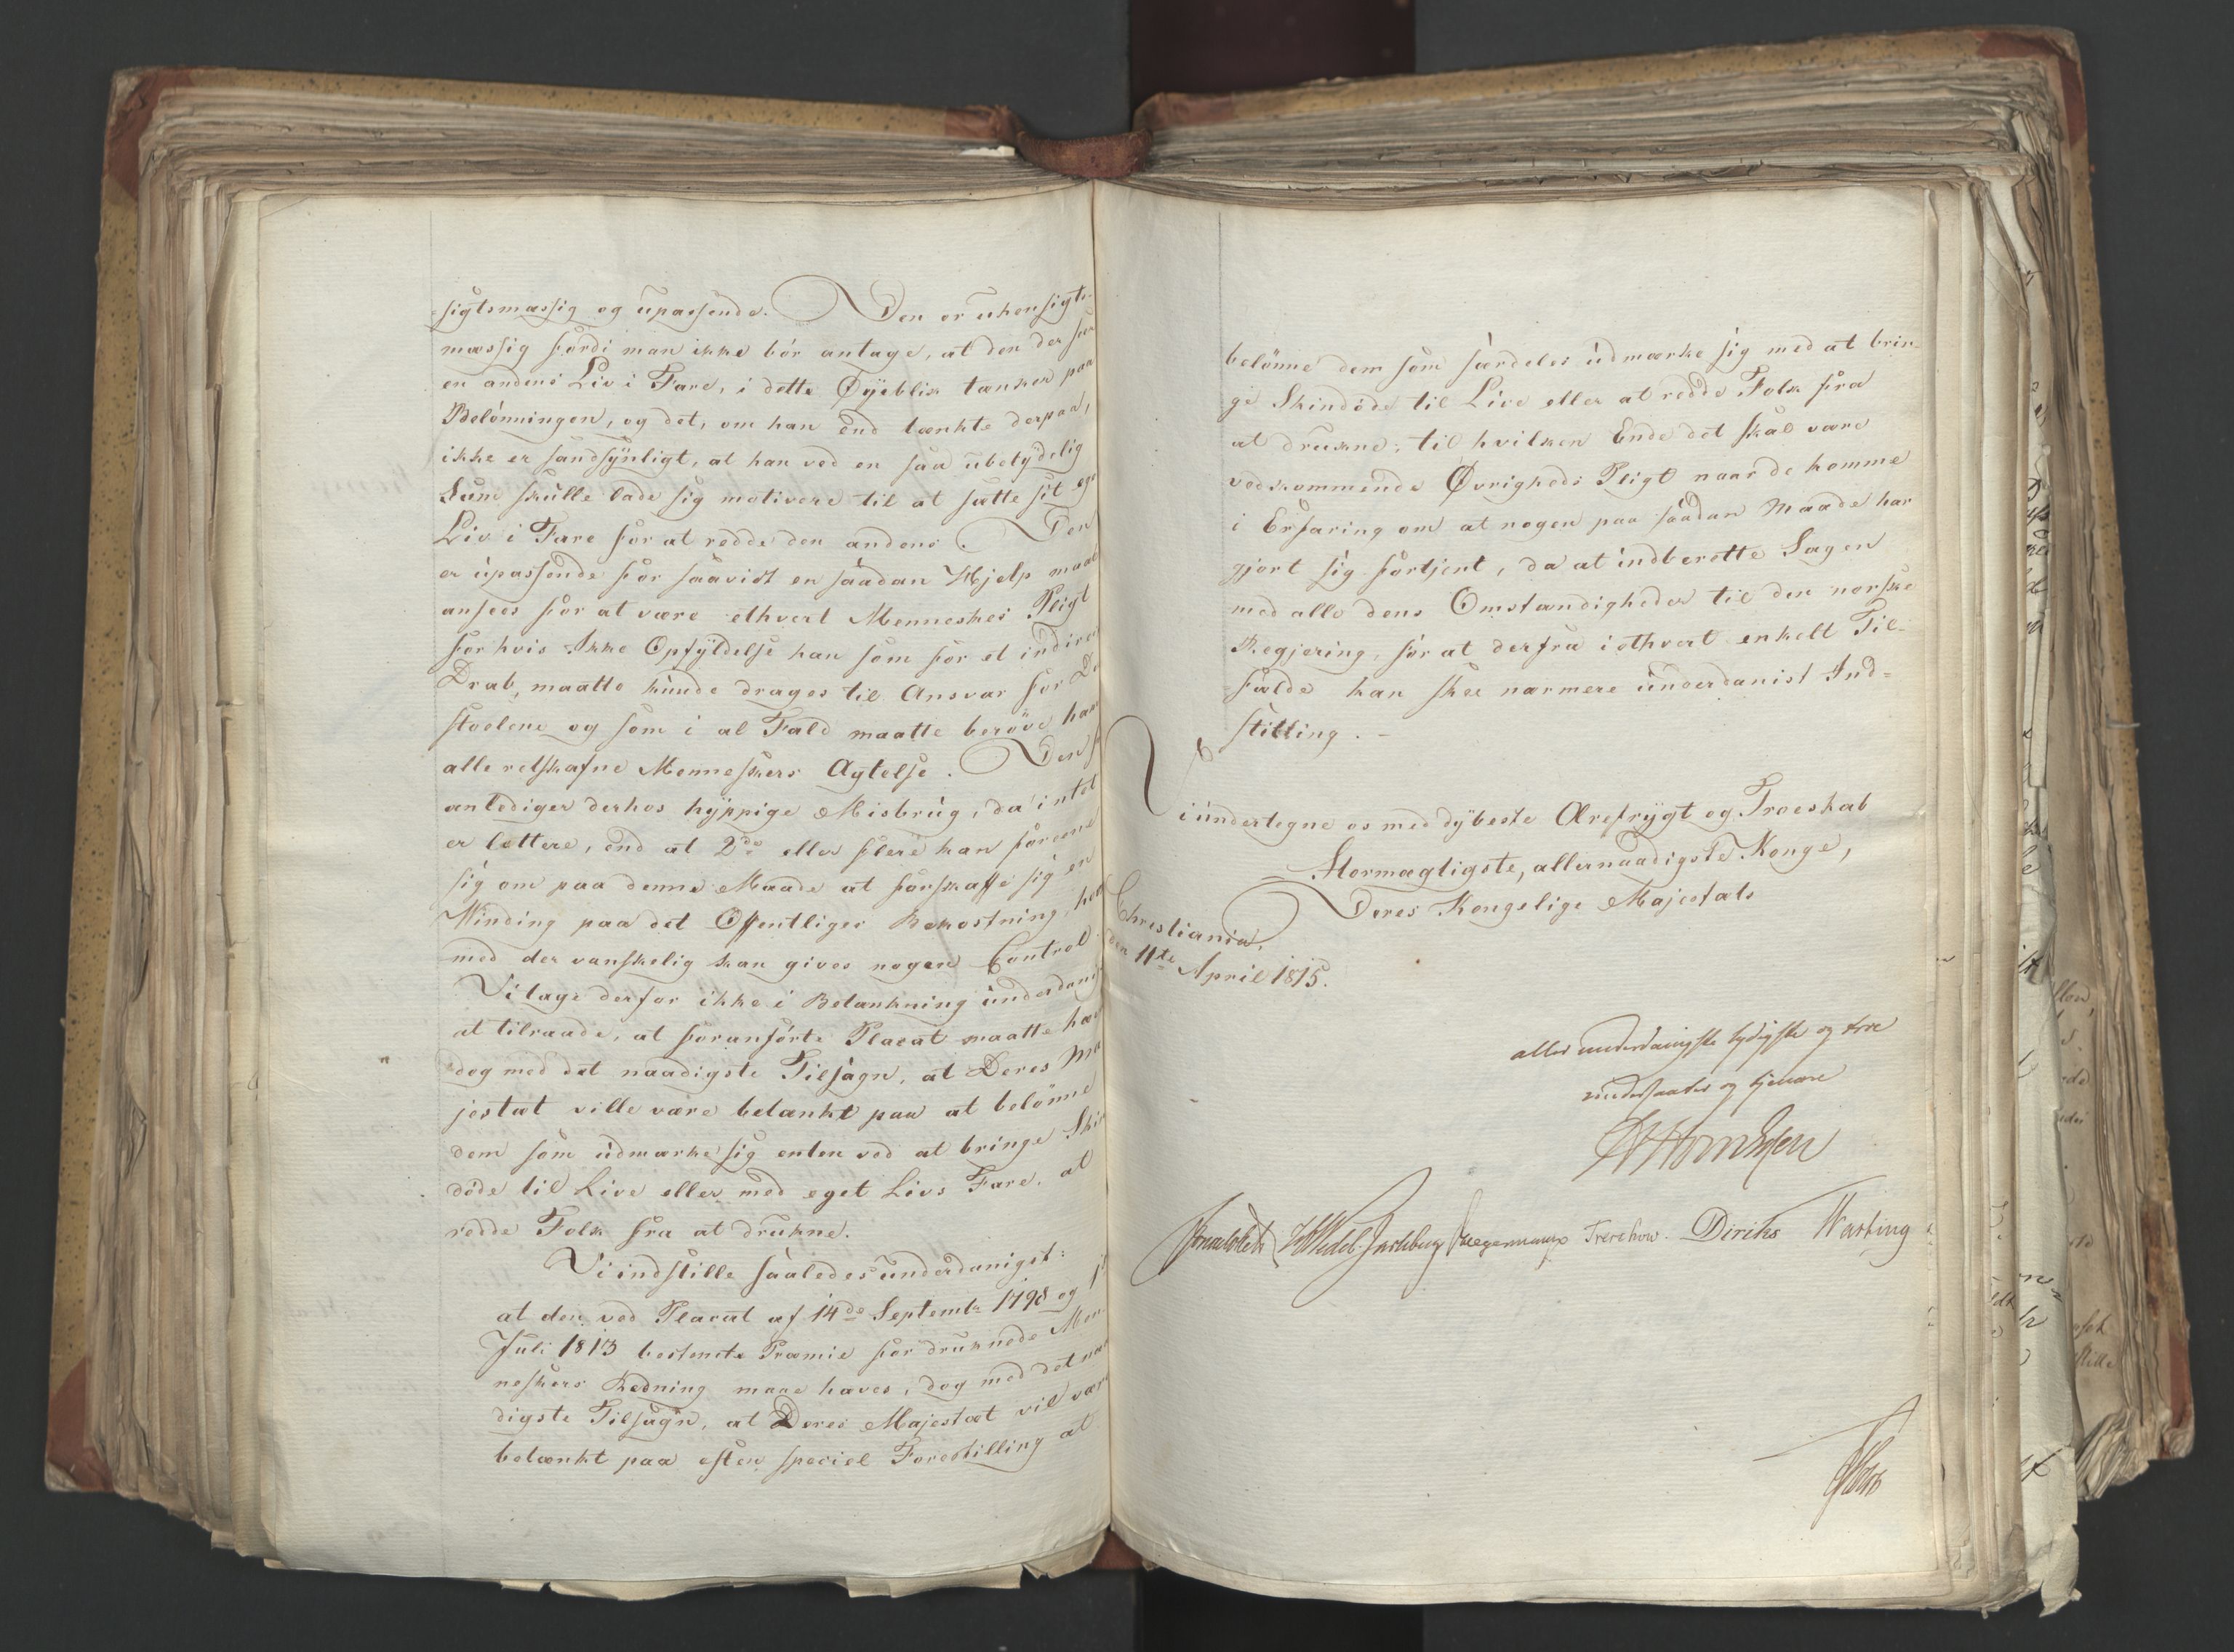 sigtsmæssig og upassende. Den er uhensigts-
mæssig fordi man ikke bör antage, at den der seer
en andens Liv i Fare, i dette Øyeblik tænker paa
Belönningen, og det, om han end tænkte derpaa,
ikke er sandsynligt, at han ved en saa ubetydelig
Sum skulle lade sig motivere til at sætte sit eget
Liv i Fare for at redde den andens. Den
er upassende for saavidt en saadan Hjelp maae
ansees for at være ethvert Menneskes Pligt
for hvis Ikke Opfyldelse han som for et indirec
Drab, maatte kunde drages til Ansvar for Do
stolene og som i al Fald maatte beröve ham
alle retskafne Menneskers Agtelse. Den
anlediger derhos hyppige Misbrug, da intet
er lettere, end at 2de eller flere kan forene
sig om paa denne Maade at forskaffe sig en
Winding paa det Offentliges Bekostning, hvor
med der vanskelig kan gives nogen Control.
Vi tage derfor ikke i Betænkning underdanigst
at tilraade, at foranförte Placat maatte hæves
dog med det naadigste Tilsagn, at Deres Ma
jestæt ville være betænkt paa at belönne
dem som udmærke sig enten ved at bringe Skin
döde til Live eller med eget Livs Fare, at
redde Folk fra at drukne.
Vi indstille saaledes underdanigst:
at den ved Placat af 14de Septembr 1798 og
Juli 1813 bestemte Præmie for druknede Men-
neskers Redning maae hæves, dog med det naa
digste Tilsagn, at Deres Majestæt vil være
betænkt paa efter speciel Forestilling at
belönne dem som særdeles udmærke sig med at brin-
ge Skindöde til Live eller at redde Folk fra
at drukne; til hvilken Ende det skal være
vedkommende Øvrigheds Pligt naar de komme
i Erfaring om at nogen paa saadan Maade har
gjort sig fortjent, da at indberette Sagen
med alle dens Omstændigheder til den norske
Regjering, for at derfra i ethvert enkelt Til-
fælde kan skee nærmere underdanist Ind-
stilling. -
Vi undertegne os med dybeste Ærefrygt og Troeskab
Stormægtigste, allernaadigste Konge,
Deres Kongelige Majestæts
Christiania,
den 11te April 1815.
aller underdanigste lydigste og troe
undersaatter og tjenere
Sommerhielm Wedel Jarlsberg Hegermann Treschow. Diriks Wasting